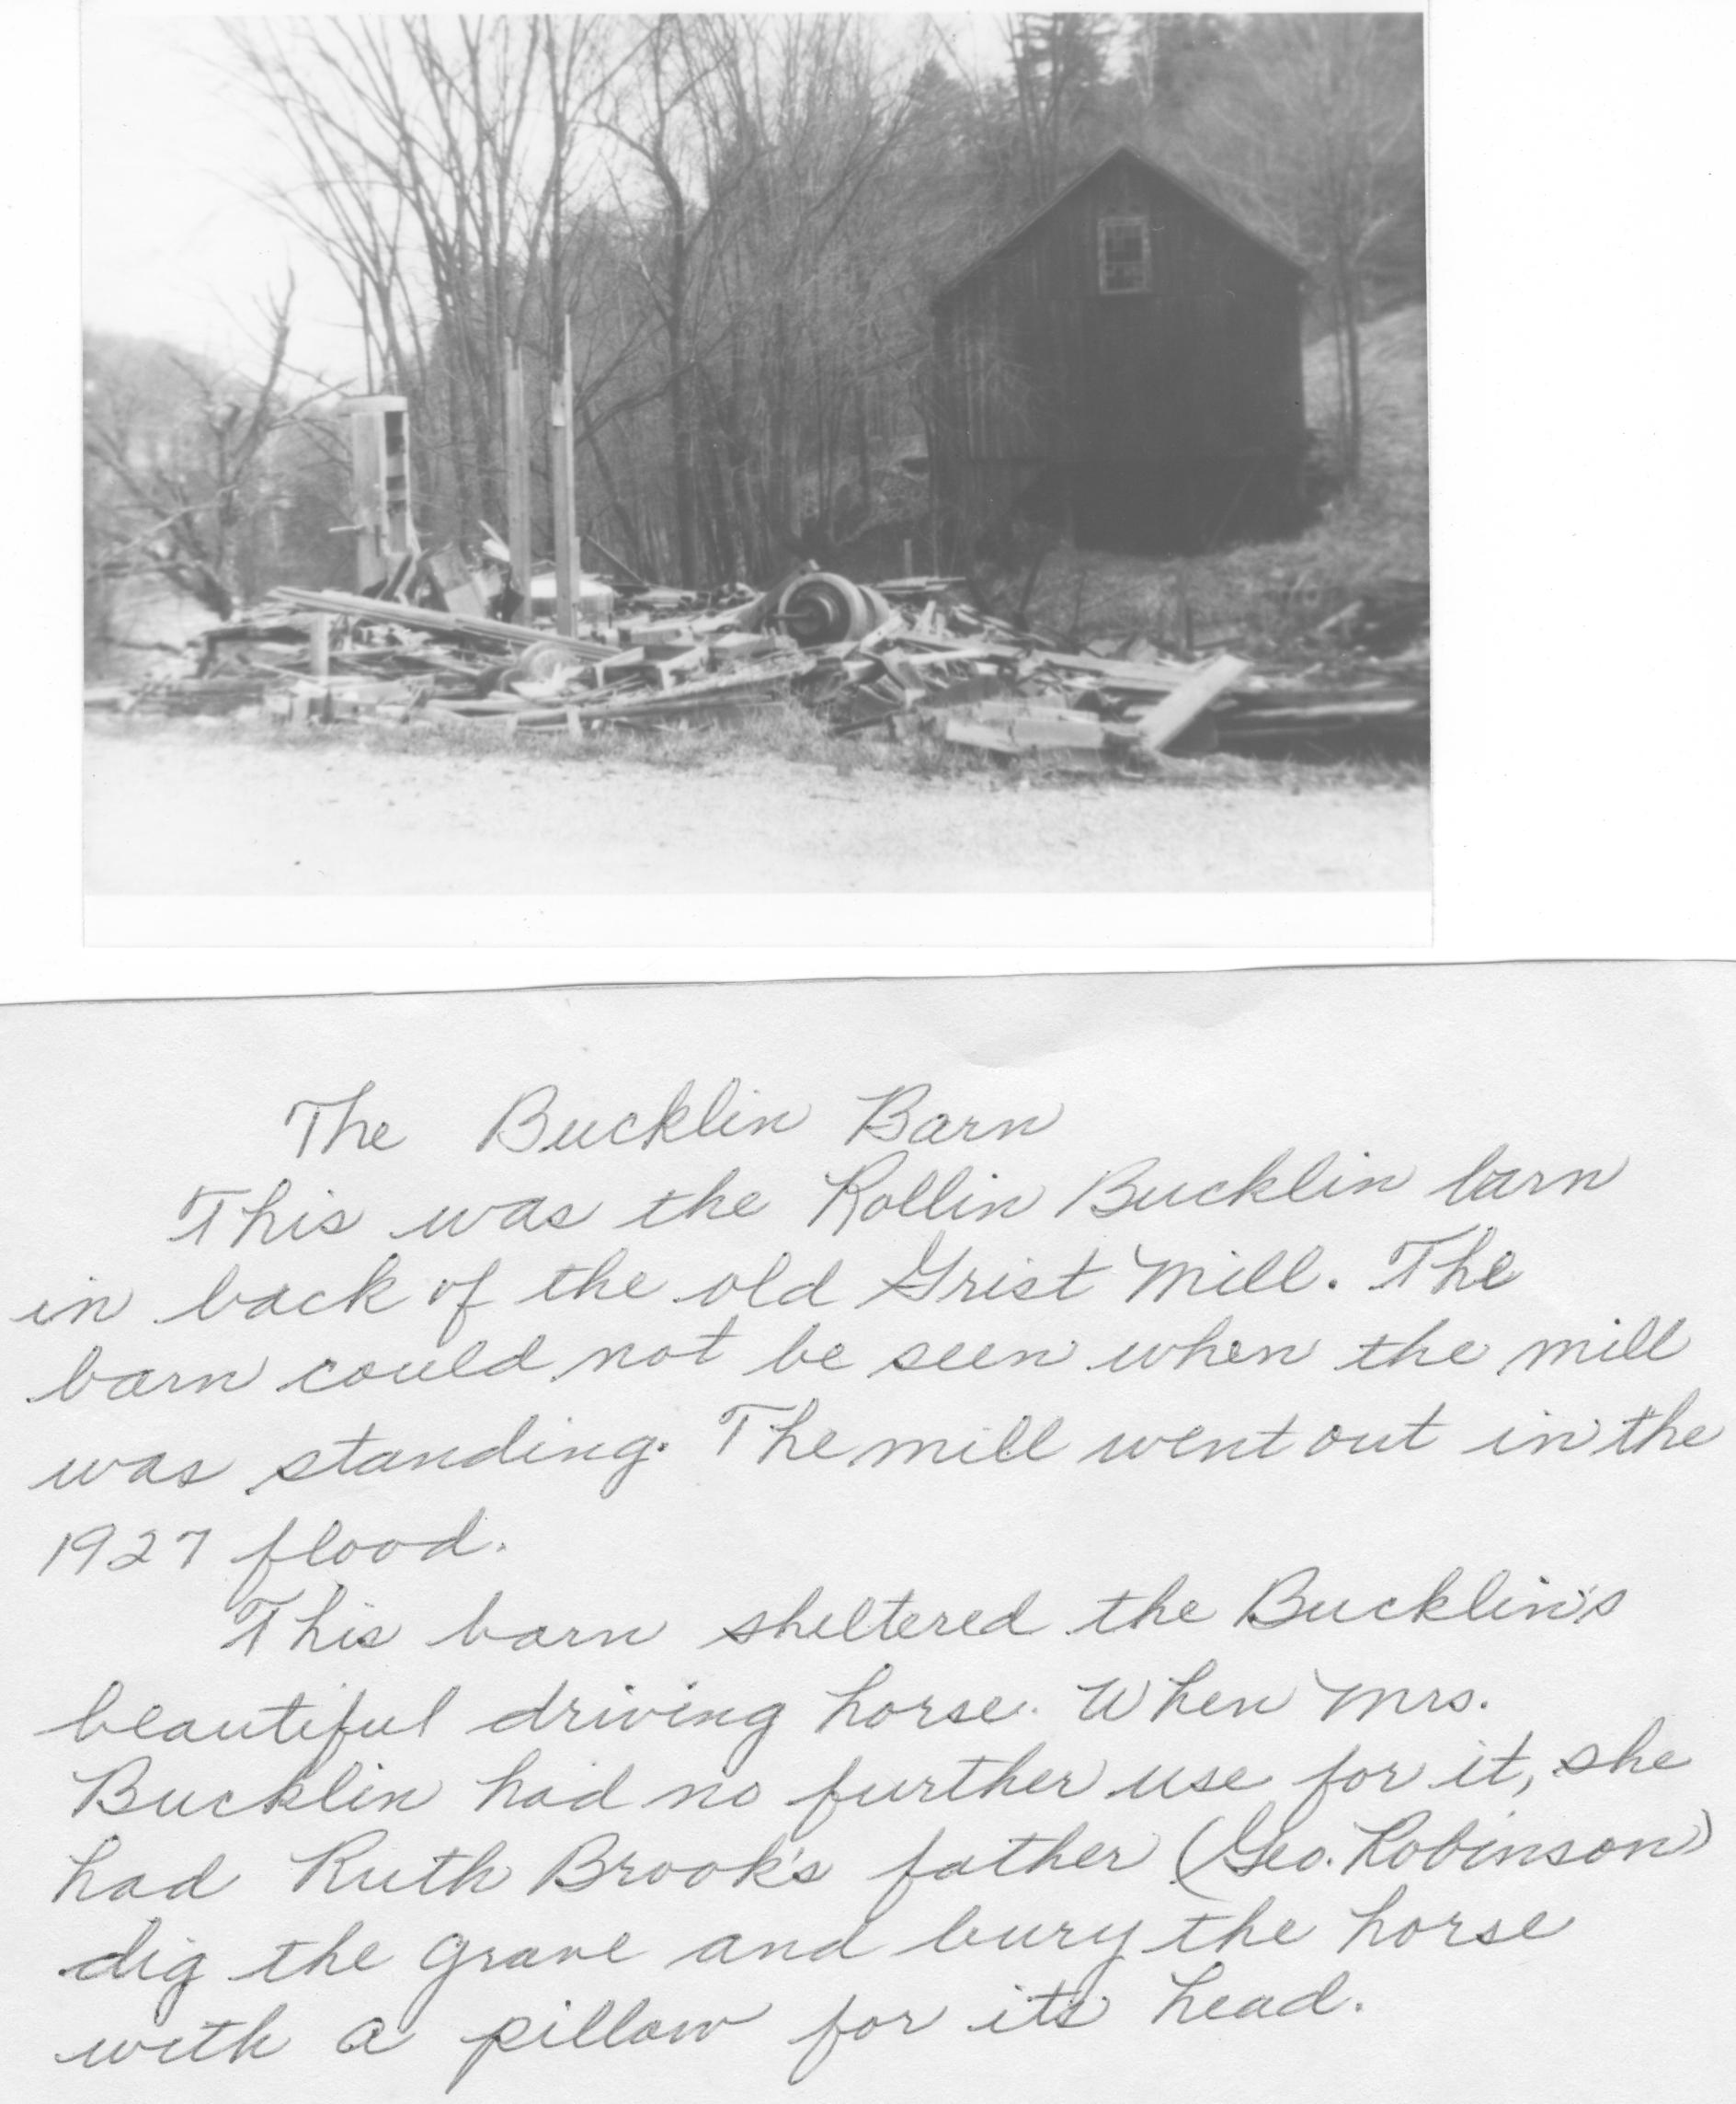 The Bucklin Barn
This was the Rollin Bucklin barn
in back of the old Grist Mill. The
barn could not be seen when the mill
was standing. The mill went out in the
1927 flood.
This barn sheltered the Bucklin's
beautiful driving horse. When Mrs.
Bucklin had no further use for it, she
had Ruth Brook's father (Geo. Robinson)
dig the grave and bury the horse
with a pillow for its head.